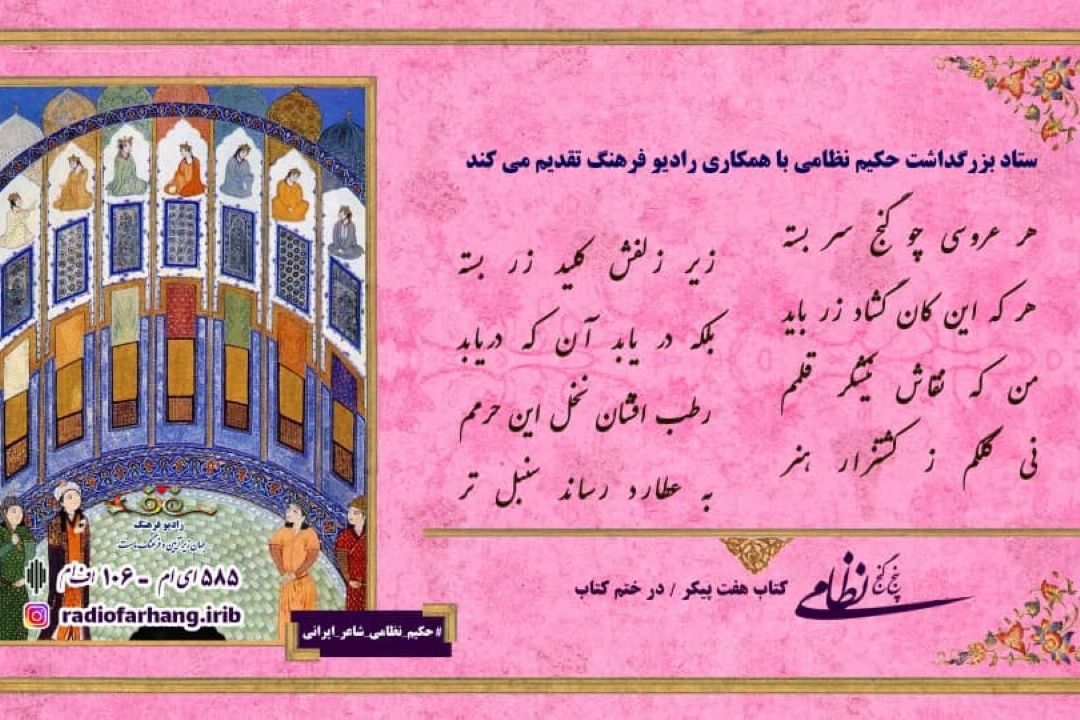 ستاد بزرگداشت حکیم نظامی با همکاری رادیو فرهنگ تقدیم می کند
هر عروسی چو گنج سر بسته
زیر زلفش کلید زر بسته
هر که این کان گشاد زر یابد
بلکه در یابد آن که دریابد
من که نقاش نیشکر قلمم
رطب افشان نخل این حرمم
نی کلکم ز کشتزار هنر
به عطارد رساند سنبل تر
پنج گنج نظامی
کتاب هفت پیکر / در ختم کتاب
رادیو فرهنگ
جهان زیر آیین و فرهنگ ماست
۵۸۵ ای ام - ۱۰۶ اف ام
radiofarhang.irib
#حکیم_نظامی_شاعر_ایرانی